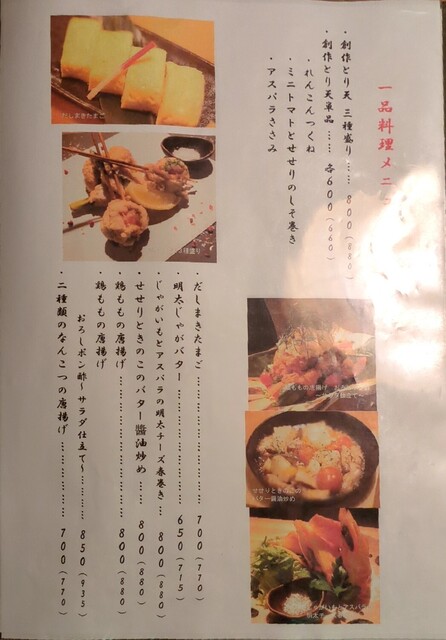 一品料理メニ
・創作とり天 三種盛り…… 800(880)
・創作とり天単品…… 各600(660)
・れんこんつくね
・ミニトマトとせせりのしそ巻き
・アスパラささみ
だしまきたまご
・だしまきたまご…………… 700(770)
・明太じゃがバター…………… 650(715)
・じゃがいもとアスパラの明太チーズ春巻き… 800(880)
・せせりときのこのバター醤油炒め…… 800(880)
・鶏ももの唐揚げ…………… 800(880)
・鶏ももの唐揚げ
おろしポン酢〜サラダ仕立て〜……… 850(935)
・二種類のなんこつの唐揚げ…………… 700(770)
せせりときのこの
バター醤油炒め